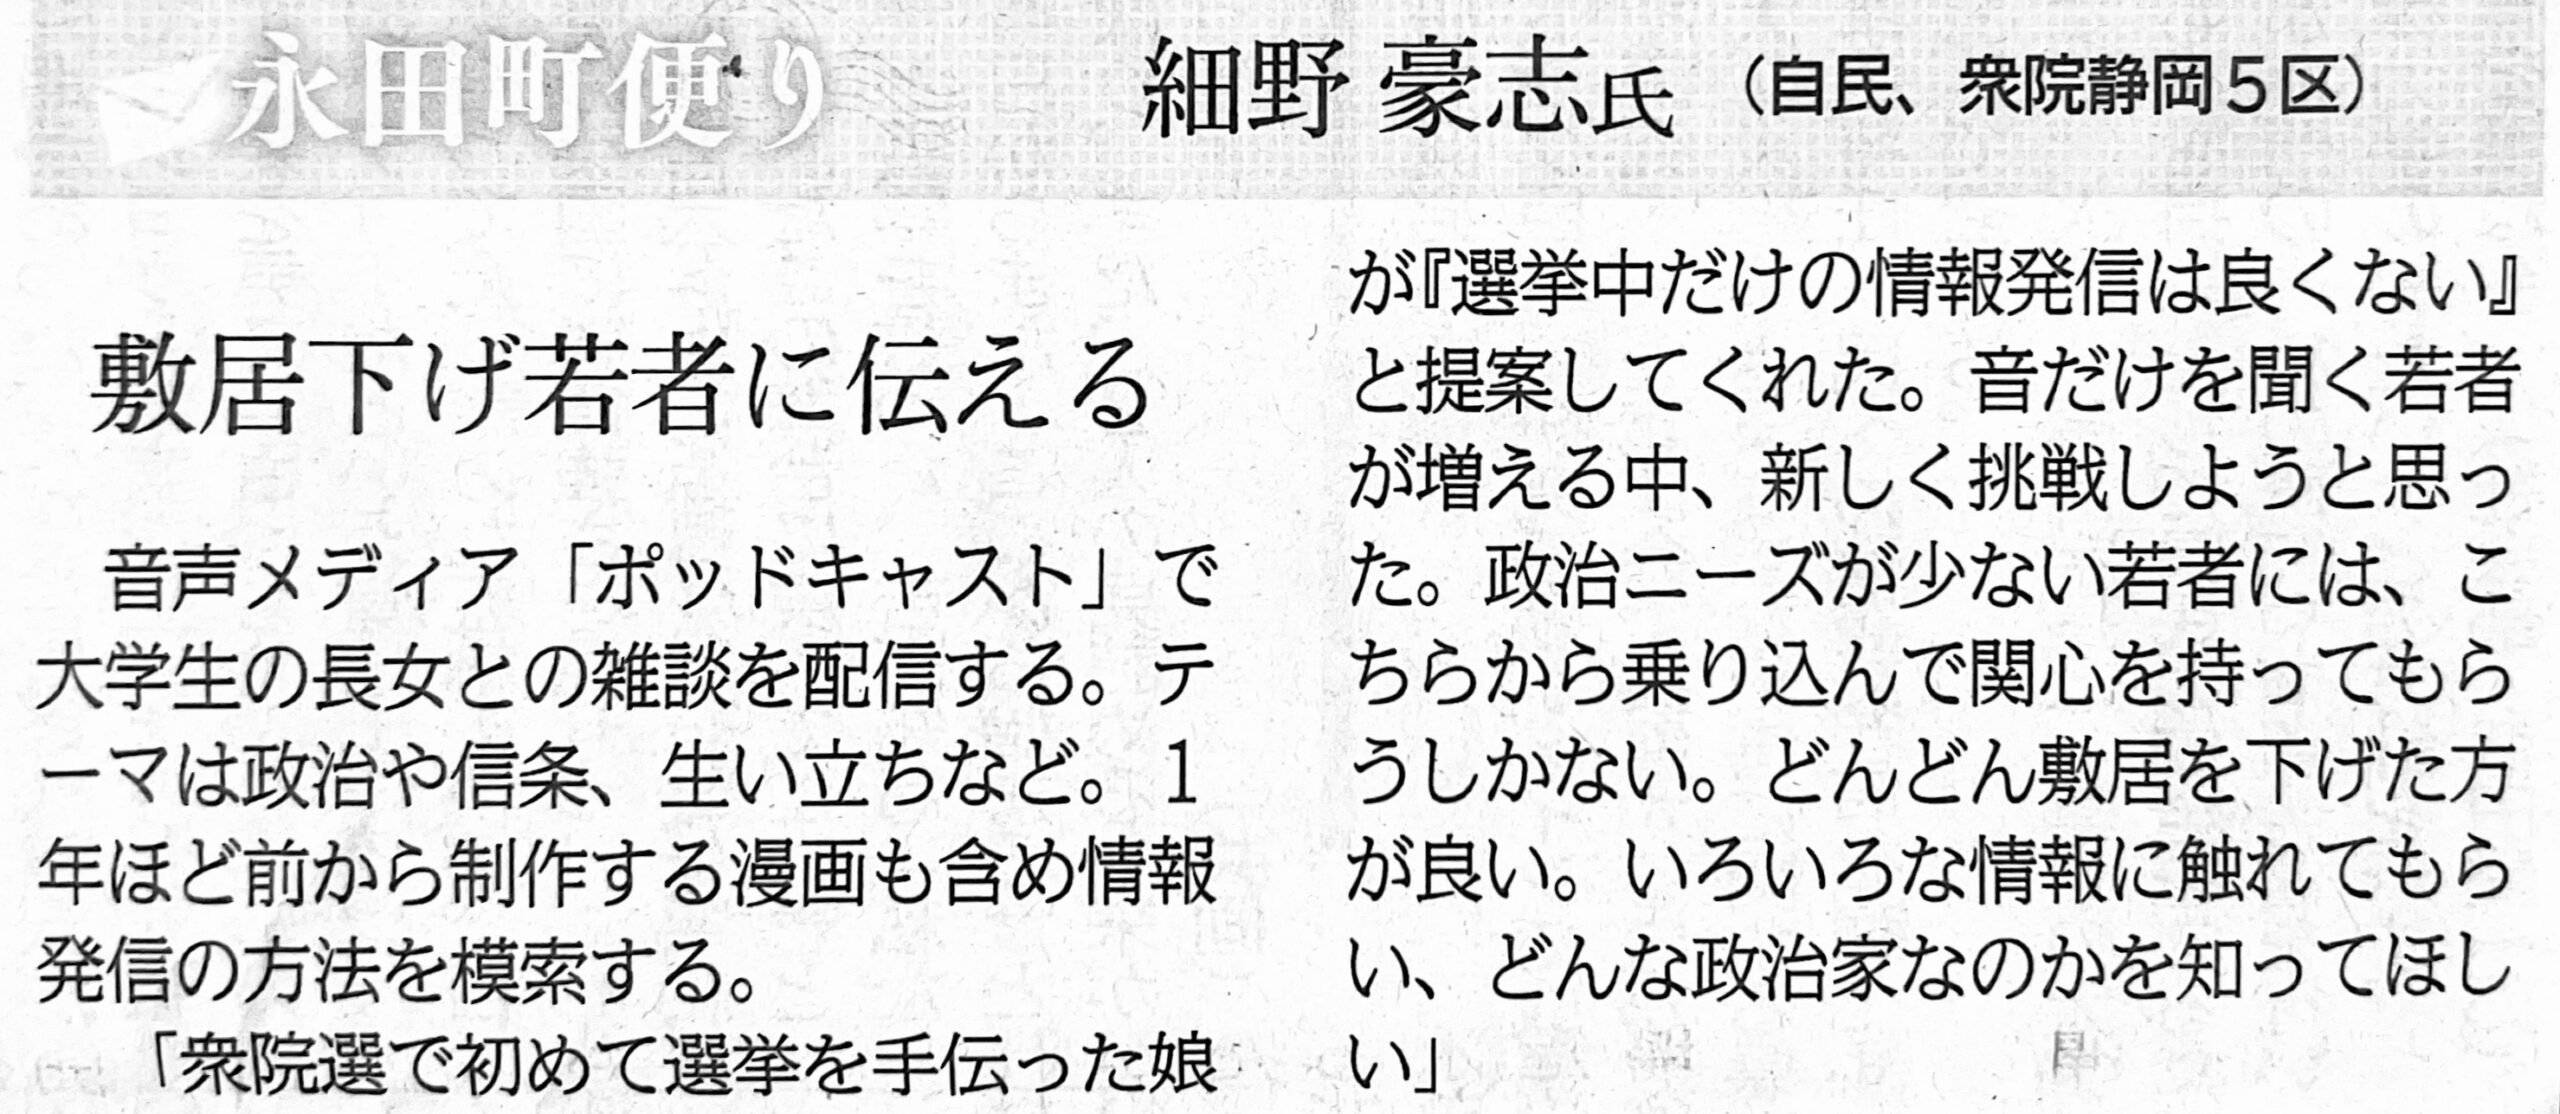 永田町便り
細野 豪志氏 （自民、衆院静岡５区）
敷居下げ若者に伝える
音声メディア「ポッドキャスト」で
大学生の長女との雑談を配信する。テ
ーマは政治や信条、生い立ちなど。１
年ほど前から制作する漫画も含め情報
発信の方法を模索する。
「衆院選で初めて選挙を手伝った娘
が『選挙中だけの情報発信は良くない』
と提案してくれた。音だけを聞く若者
が増える中、新しく挑戦しようと思っ
た。政治ニーズが少ない若者には、こ
ちらから乗り込んで関心を持ってもら
うしかない。どんどん敷居を下げた方
が良い。いろいろな情報に触れてもら
い、どんな政治家なのかを知ってほし
い」